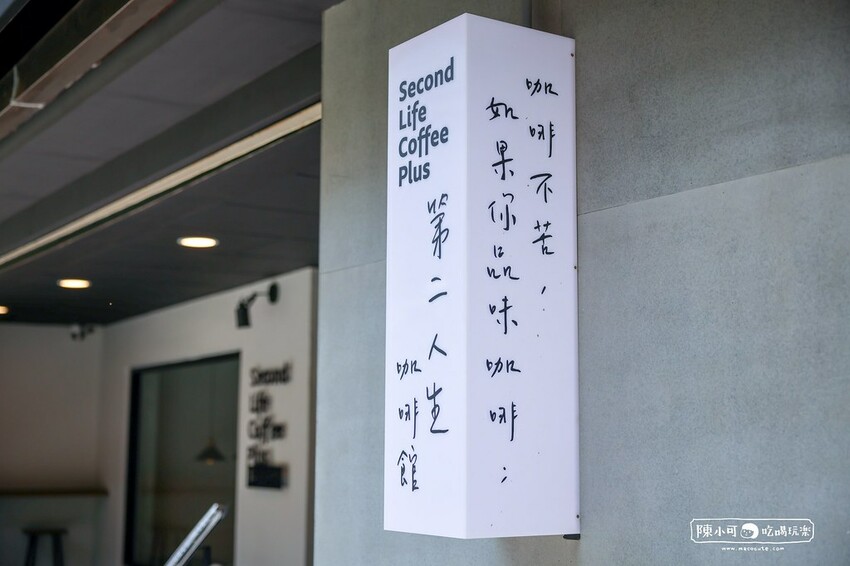 Second
Life
Coffee
Plus
第二人生
咖啡館
咖啡不苦，
如果你品味咖啡；
Second
Life
Coffee
Plus
陳小可 吃喝玩樂
www.macocute.com